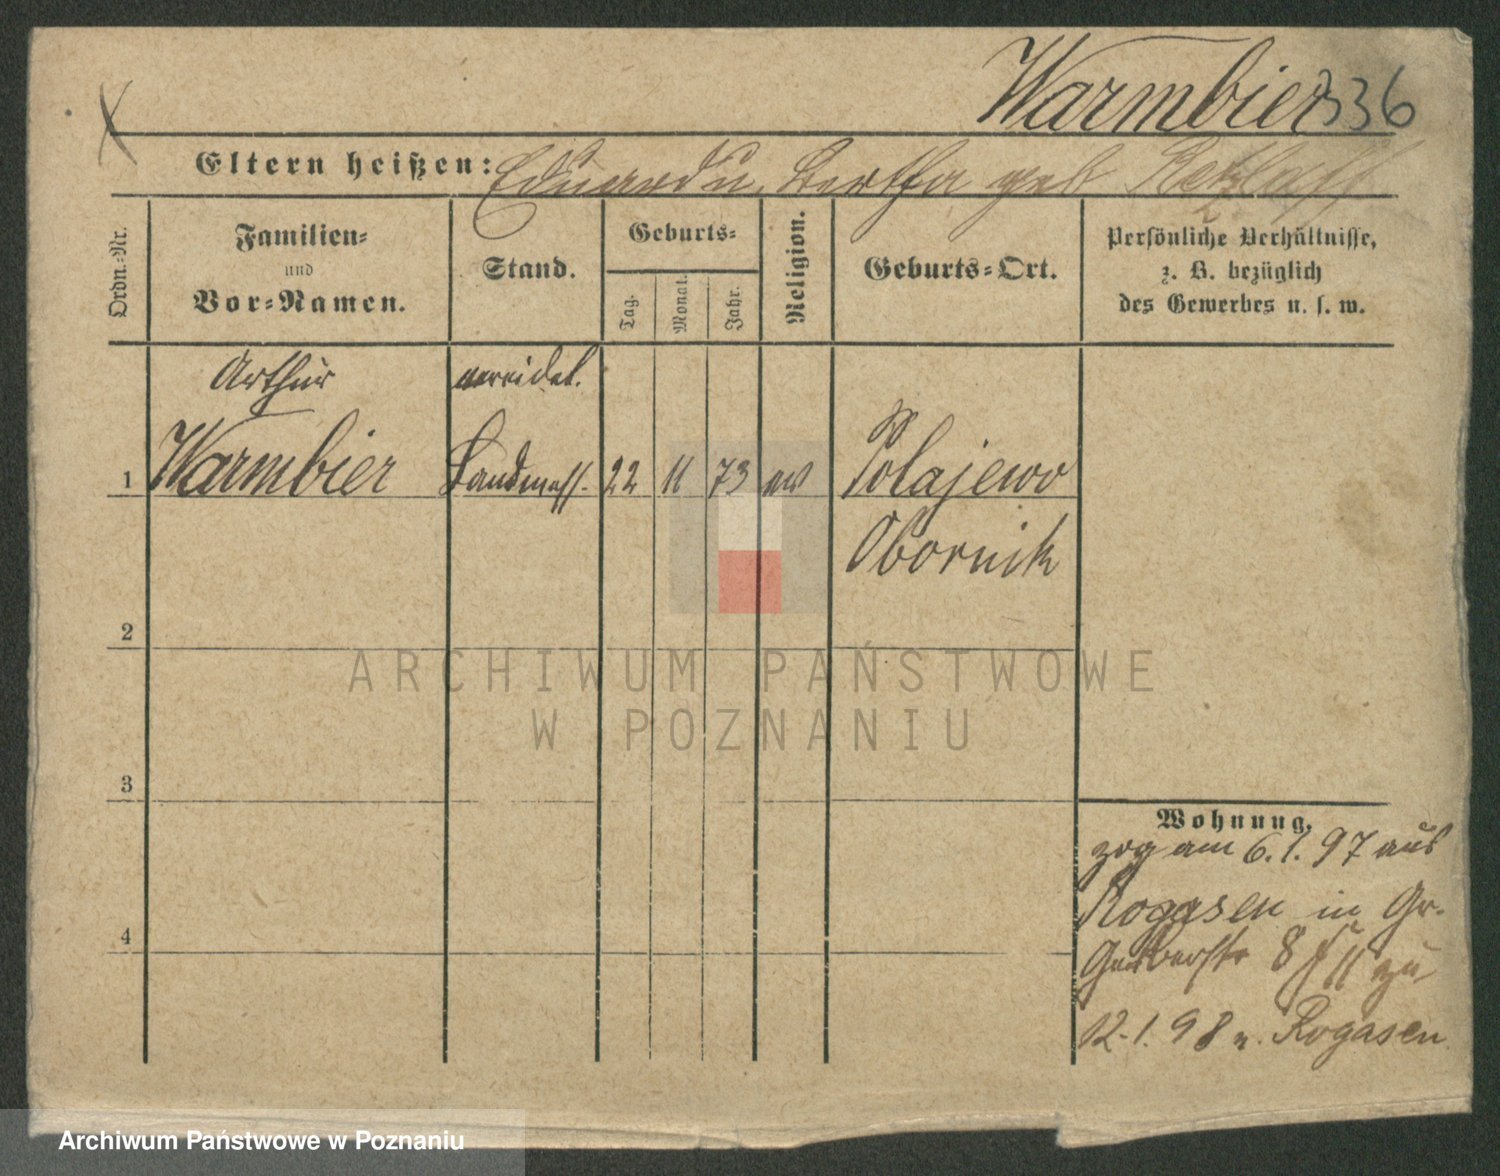 Warmbier 336
Eltern heißen: Eduard u. Bertha geb Retzlaff
Ordn.-Nr.
Familien-
und
Vor-Namen.
Stand.
Geburts-
Tag.
Monat.
Jahr.
Religion.
Geburts-Ort.
Persönliche Verhältnisse,
z. B. bezüglich
des Gewerbes u. s. w.
Arthur vereidet.
1 Warmbier Landmess. 22 11 73 ev Polajewo
Obornik
2
3
4
Wohnung.
zog am 6.1.97 aus
Rogasen in Gr.
Gerberstr 8 II zu
12.1.98 n. Rogasen
ARCHIWUM PAŃSTWOWE
W POZNANIU
Archiwum Państwowe w Poznaniu